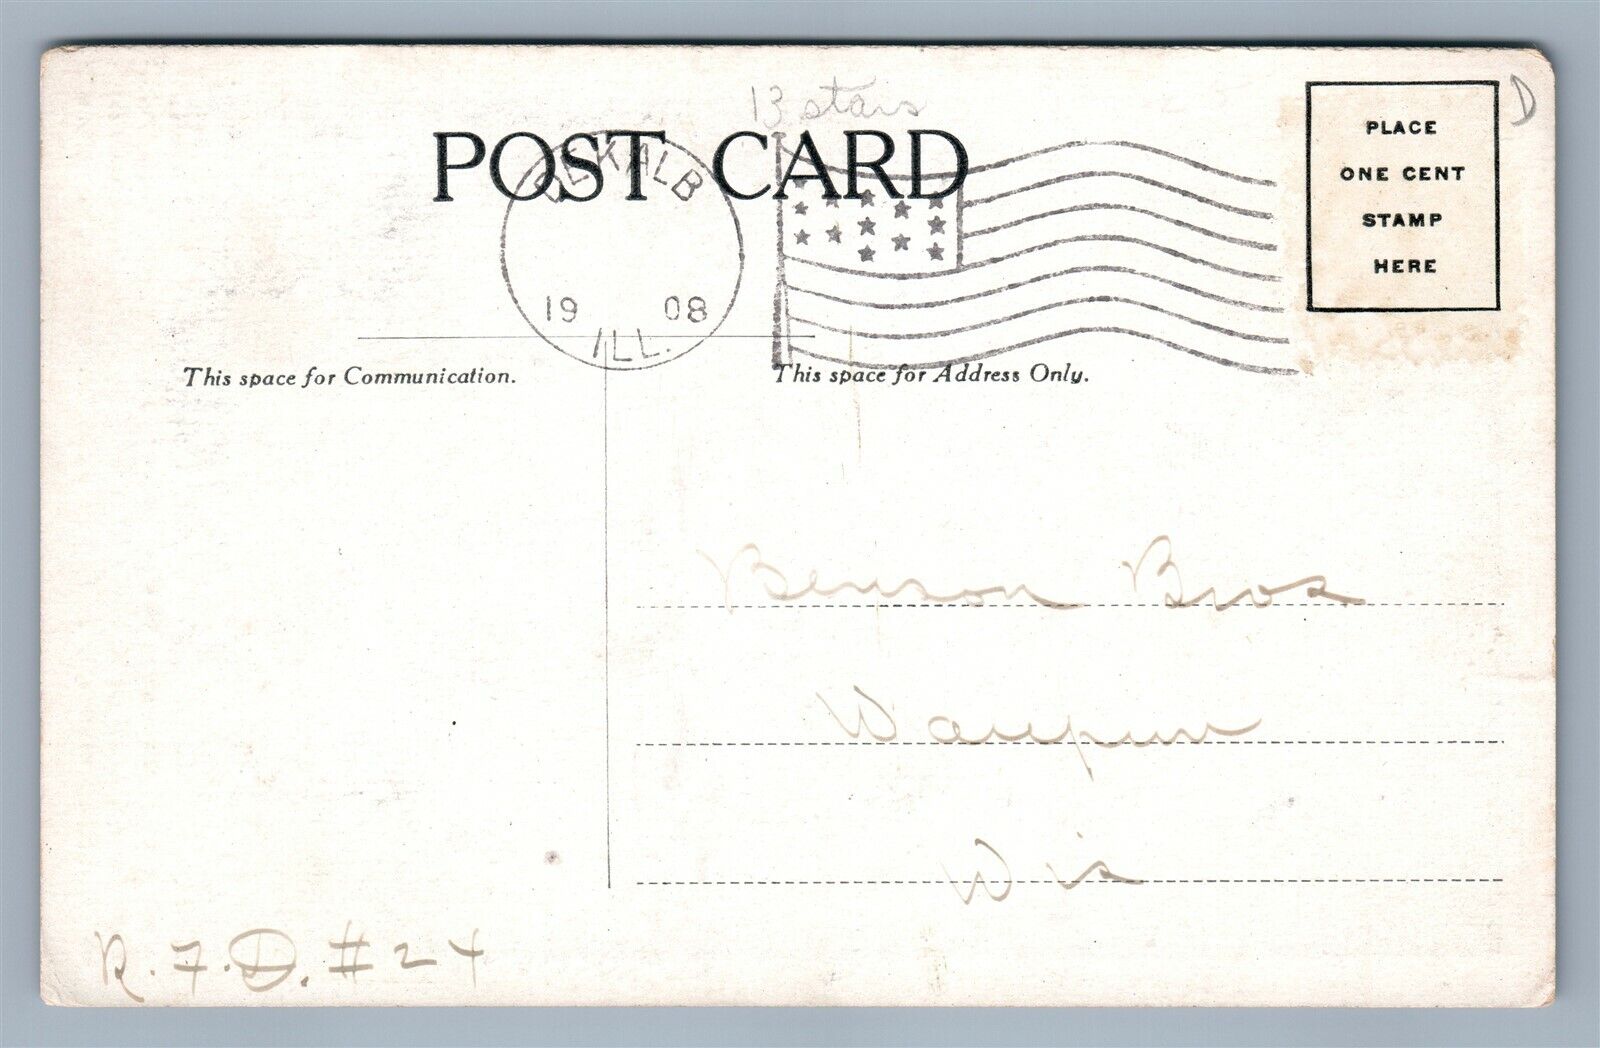 13 stars
D
POST CARD
DE KALB
19 08
ILL.
PLACE
ONE CENT
STAMP
HERE
This space for Communication.
This space for Address Only.
Benson Bros
Waupun
Wis
R. F. D. #24